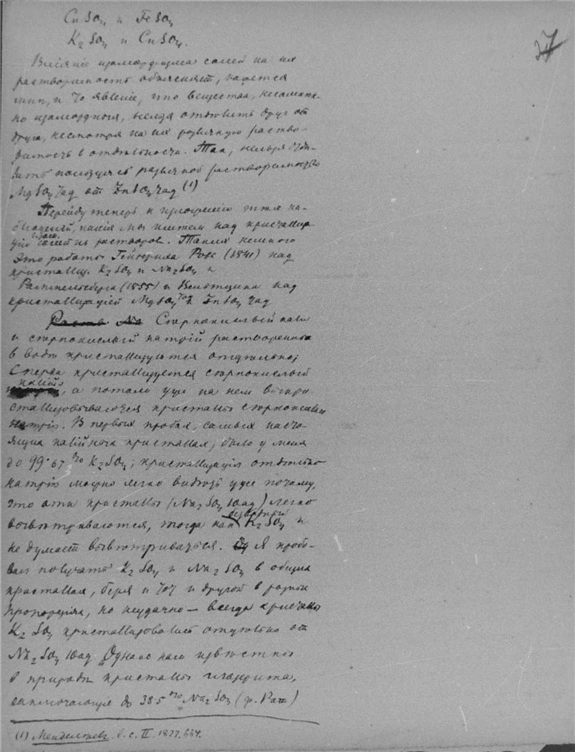 CuSO₄ и FeSO₄
27
K₂SO₄ и CuSO₄.
Вліяніе изоморфизма солей на их
растворимость объясняет, кажется
и то явленіе, что вещества,
изоморфныя, нельзя отделить друг от
друга, несмотря на их различную раство-
римость в отдельности. Так, нельзя
пользуясь различной растворимостью
MgSO₄ 7aq от ZnSO₄ 7aq (1)
Перейду теперь к тех на-
блюденій, какія мы имеем над кристаллиза-
цией солей из растворов. Таких немного
Это работы Генриха Розе (1841) над
кристаллиз. K₂SO₄ и Na₂SO₄ и
Раммельсберга (1855) и над
кристаллизацией MgSO₄ 7aq ZnSO₄ 7aq
Сернокислый кали
и сернокислый натрій растворенные
в воде кристаллизуются отдельно:
Сперва кристаллизуется сернокислый
калій, а потом уже на нем выкри-
сталлизовываются кристаллы сернокислого
натрія. В первых пробах, самых
кристаллах, было у меня
до 99·67 % K₂SO₄; кристаллизація отдельно
натрія можно легко видеть уже почему,
что эти кристаллы (Na₂SO₄ 10aq) легко
выветриваются, тогда как K₂SO₄ и
не думает выветриваться. Я пробо-
вал получать K₂SO₄ и Na₂SO₄ в общих
кристаллах, беря и тот и другой в разной
пропорціях, но неудачно — всегда кристаллы
K₂SO₄ кристаллизовался отдельно от
Na₂SO₄ 10aq. Однако нам известны
в природе кристаллы глазерита,
заключающие до 38·5 % Na₂SO₄ (ф. Рат)
(1) Менделеев. l. c. II 1877, 664.